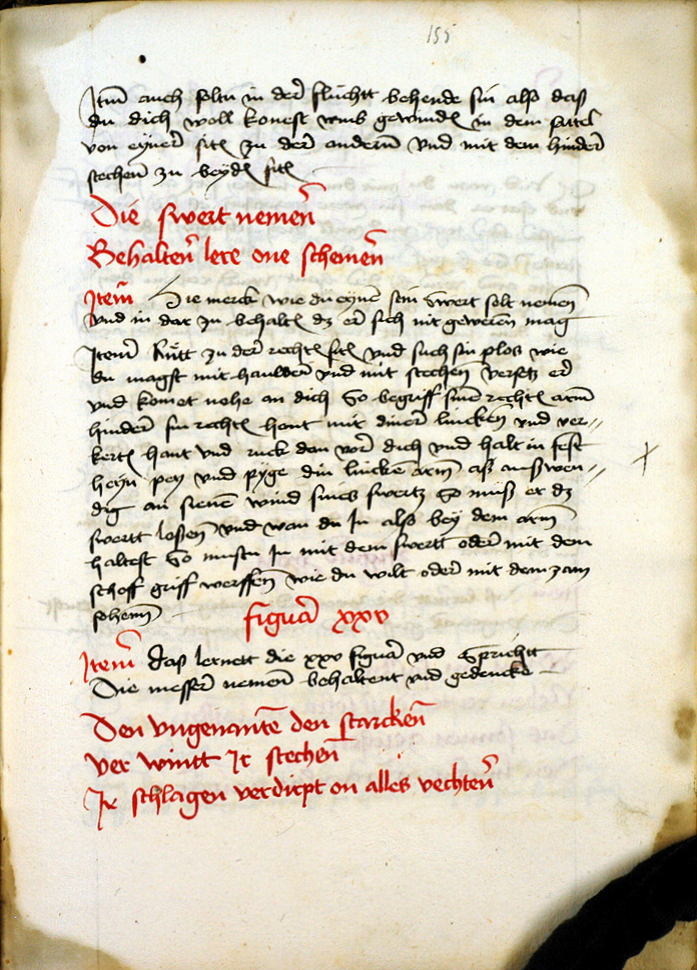 155
Item auch soltu in der fluchtt behende sin also das
du dich woll konest umb gewinden in dem sattel
von eyner siten zu der andern vnd mit dem hinder
stechen zu beyden siten
Die swert nemen
Behalten lere one schemen
Item Hie merck wie du eynem sein swert solt nemen
vnd in dar zu behalten dz er sich nit geweren mag
Item Rytt zu der rechten siten vnd such sin plos wie
du magst mit hawen vnd mit stechen versetz er
vnd komet nohe an dich So begriff sine rechten arm
hinder sin rechten hant mit diner lincken vnd ver-
kerten hant vnd ruck den vor dich vnd halt in fest
heyn pey vnd pyge din lincke arm aß außwen-
dig an sienen wind sines swertz So muß er dz
swertt lossen vnd wan du In also bey dem arm
haltest So mustu In mit dem swertt oder mit dem
schoff griff werffen wie du wilt oder mit dem zam
sohemm
figura xxv
Item das lernett die xxv figura vnd Sprichtt
Die messer nemen behaltent vnd gedencke
Den vngenanten den starcken
ver wintt Ir stechen
Ir schlagen verdirpt on alles vechten